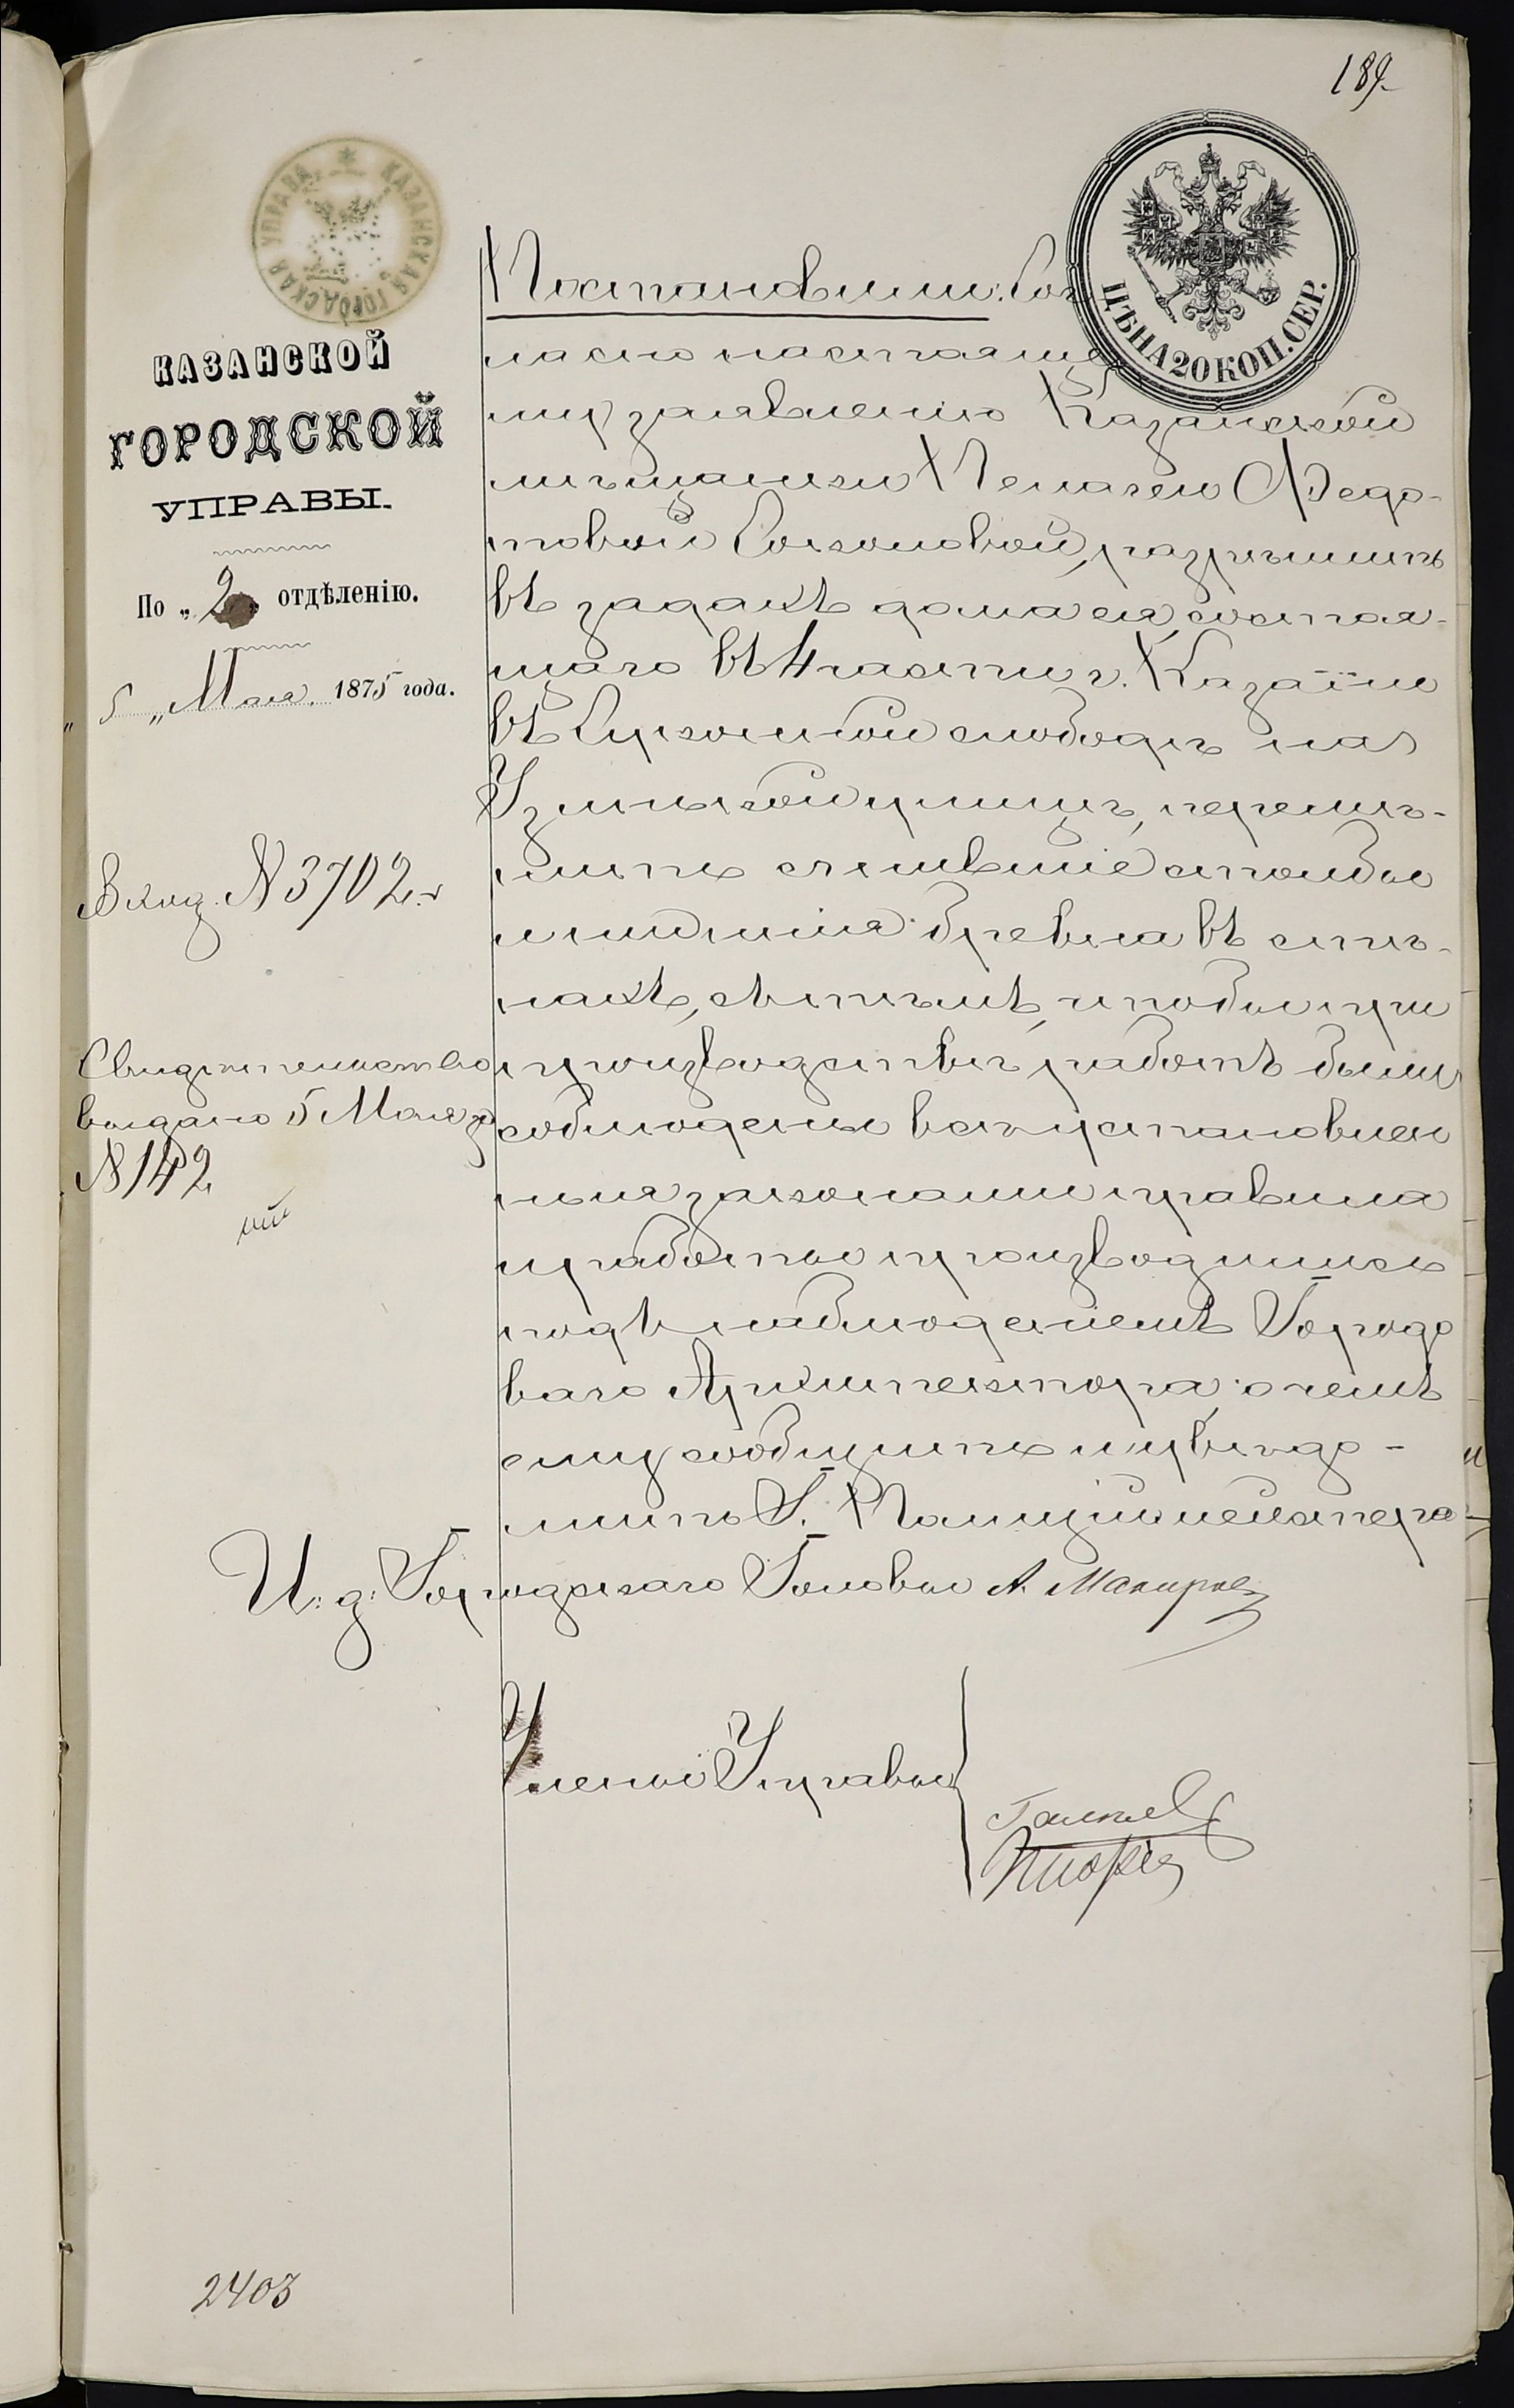 189.
КАЗАНСКАЯ ГОРОДСКАЯ УПРАВА
ЦѢНА 20 КОП. СЕР.
КАЗАНСКОЙ
ГОРОДСКОЙ
УПРАВЫ.
По „2" отдѣленію.
„5„ Мая 1875 года.
Вход. N 3702.
Свидѣтельство
выдано 5 Мая за
N 142
Постановили: Сог
ласно настояще
му заявленію Казанской
мѣщанки Пелагеи Федо-
товой Соколовой, разрѣшить
въ задахъ дома ея, состоя-
щаго въ 4 части г. Казани
въ Суконной слободѣ на
улицѣ, перемѣ-
нить сгнившіе столбы
и гнилыя бревна въ стѣ-
нахъ, съ тѣмъ, чтобы при
производствѣ работъ были
соблюдены всѣ установлен
ныя законами правила
и работы производились
подъ наблюденіемъ Городо
ваго Архитектора, о чемъ
ему сообщить и увѣдо-
мить Г. Полиціймейстера
И. д. Городскаго Головы А.
Члены Управы
2403